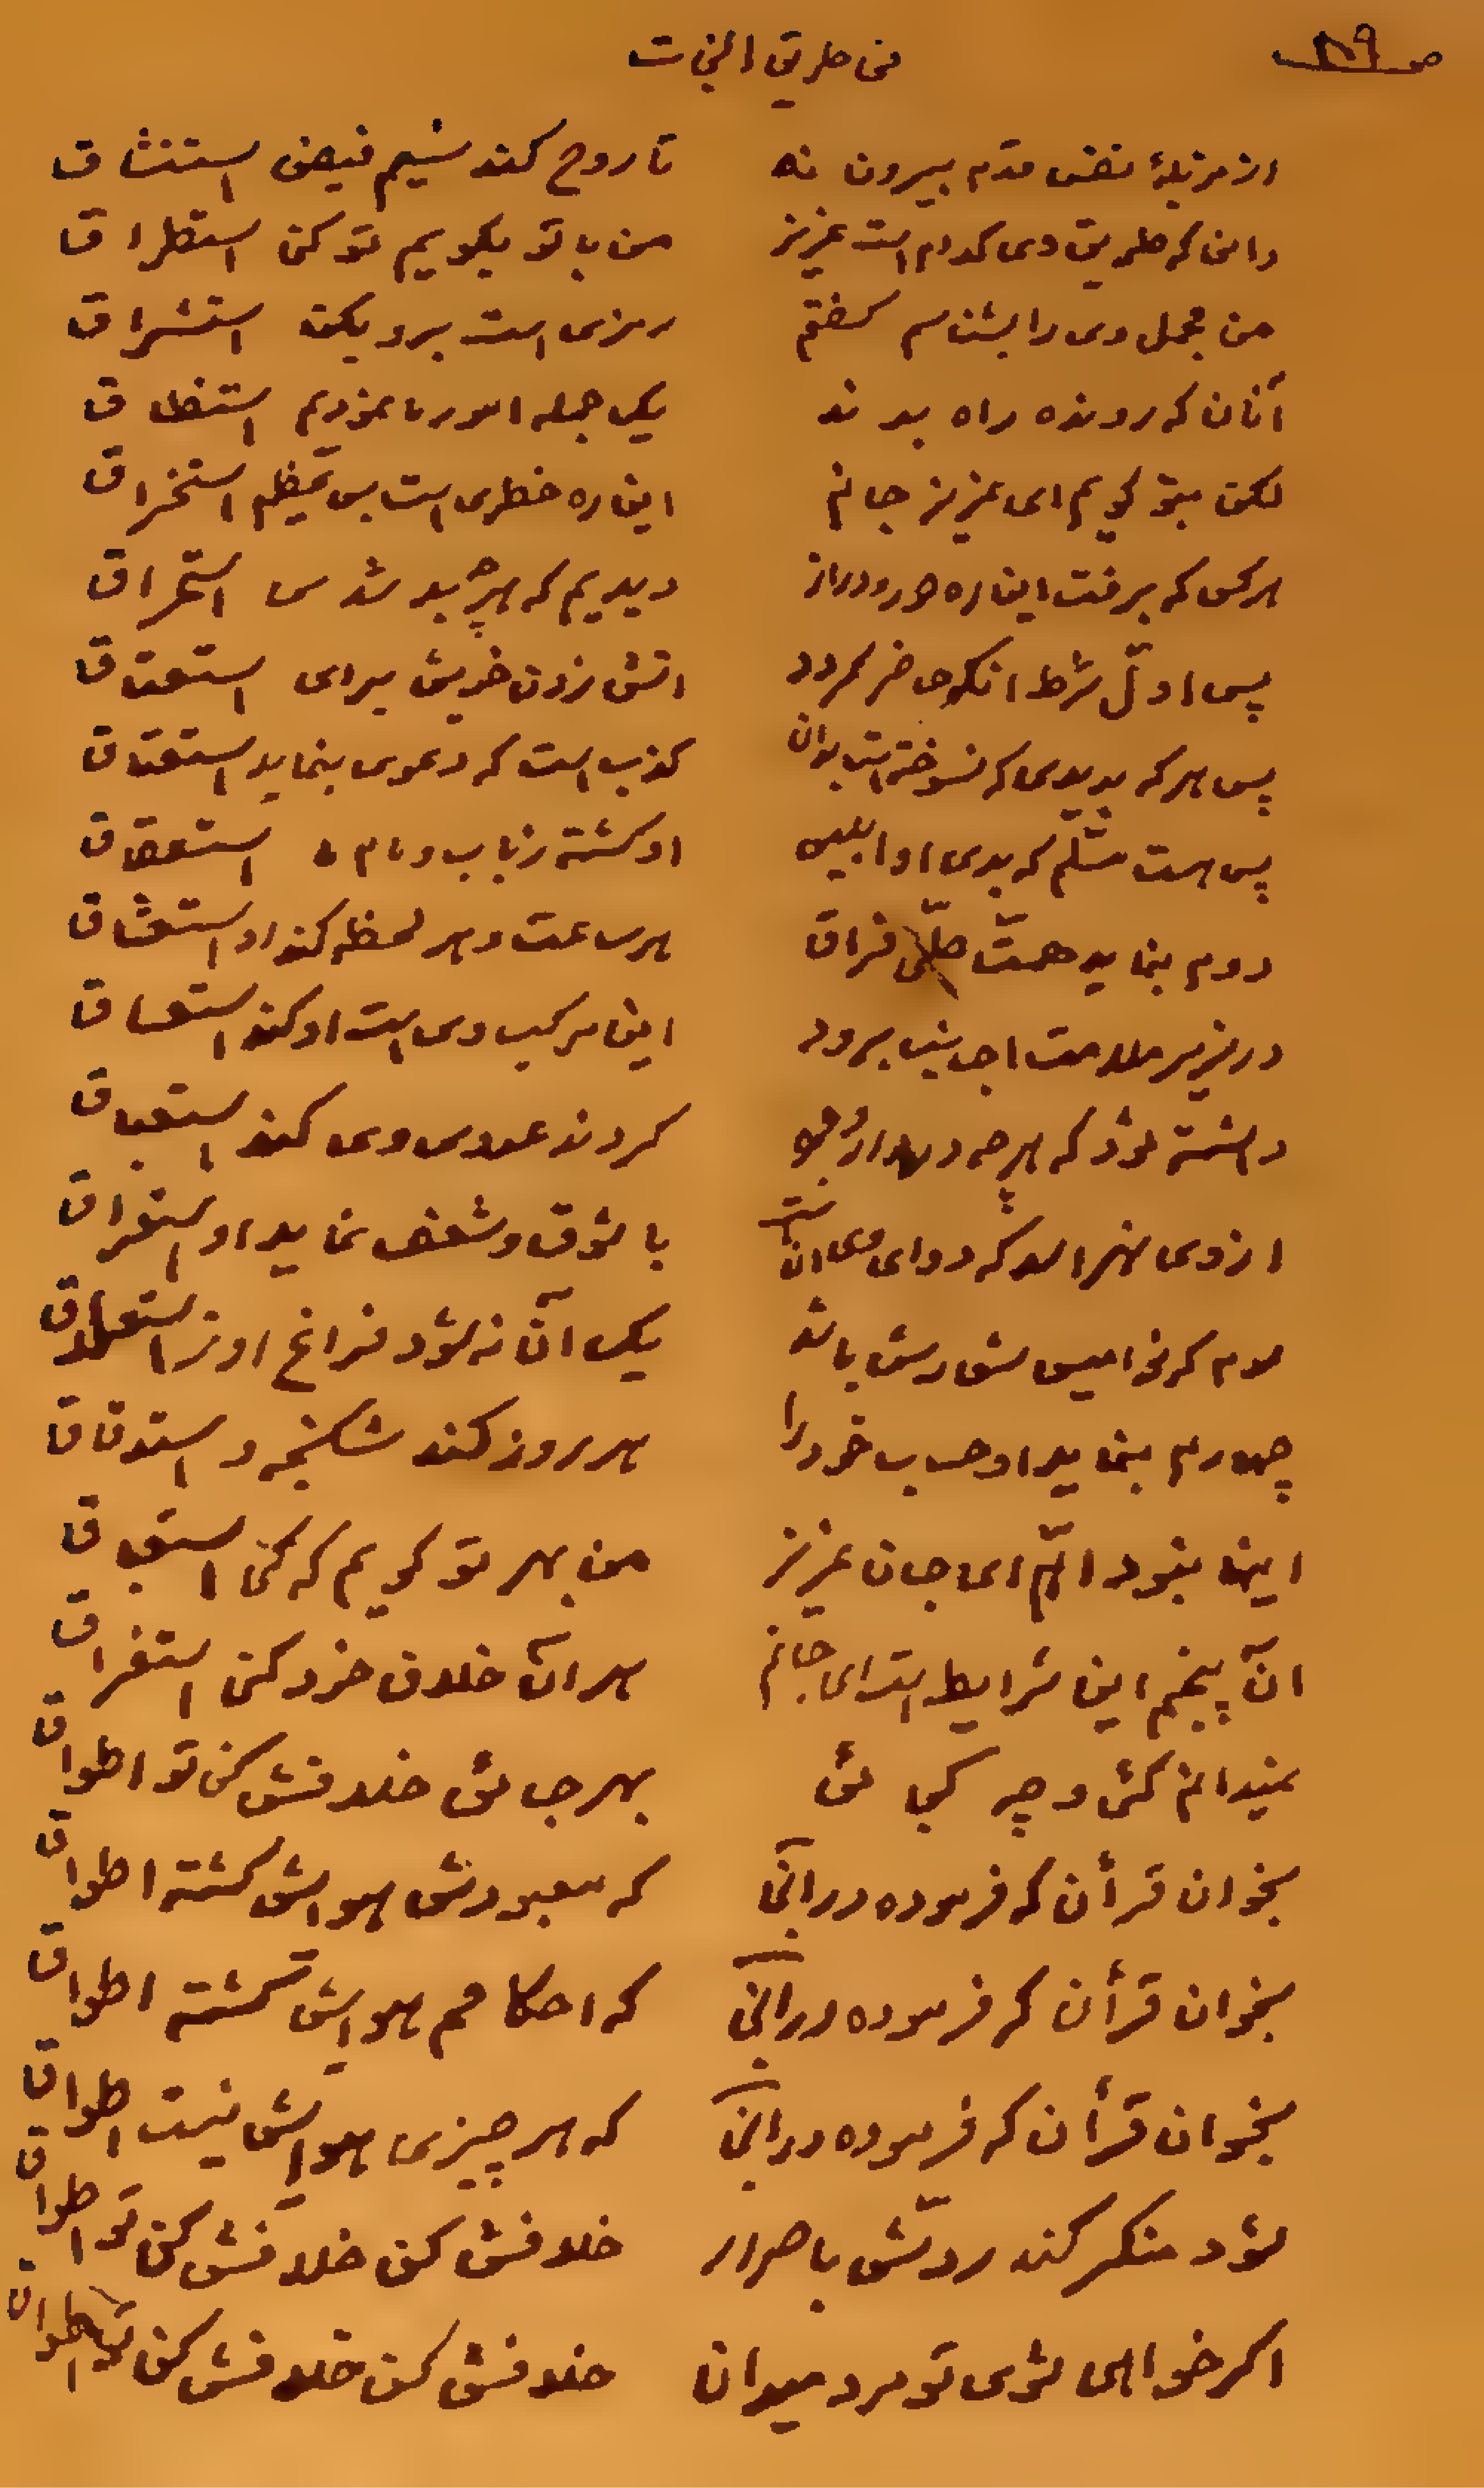 ص ۱۸۹
فی طریق النجات
از مزبلهٔ نفس قدم بیرون نه تا روح کند نسیم فیض استنشاق
دانی که طریق وی کدام است عزیز من با تو بکویم تو کن استطراق
من مجمل وی را بشناسم کفتم رمزی است برو بکن استشراق
آنان که رونده راه بدند یک جمله امور نموذیم استطلاق
لکن بتو کویم ای عزیز جانم این ره خطری است بس عظیم استخراق
هرکس که برفت این ره دور و دراز دیدیم که هرچه بد شدس استحراق
پس اوّل شرط انکه حاضر کردد اتش زدن خویش برای استعتاق
پس هرکه بدیدی که نسوخته است بدان کذب است که دعوی بنماید استعتاق
پس هست مسّلم که بدی او ابلیس او کشته ز باب و مام استعقاق
دوم بنماید همّت فراق هر ساعت و هر لحظه کند او استعشاق
در زیر ملامت اجانب برود این مرکب وی است او کند
دانسته شود که هرچه کردند عدوی وی کند
از وی نهراسد که دوای وی انست با شوق و شعف نماید او استغراق
سوم که نوامیس شعارش باشد یک آن نه شود فراغ او ز
چهارم بنماید او حساب خود را هر روز کند شکنجه و استدقاق
اینها بنود اتّم ای جان عزیز من بهر تو کویم که کنی استباق
انّ پنجم این شرایط است ای جانم هر آن خلاف خود کنی استفراق
نمیدانم کئی و چه کجائی بهر جائی خلافش کن تو اطواق
بخوان قرأن که فرموده در آنی که معبودش هوایش کشته اطواق
بخوان قرأن که فرموده در آنی که احکامم هوایش کشته اطواق
بخوان قرأن که فرموده در آنی که هر چیزی هوایش نیست اطواق
شود منکر کند ردّش باصرار خلافش کن خلافش کن تو اطواق
اکر خواهی شوی تو مرد میدان خلافش کن خلافش کن تو اطواق